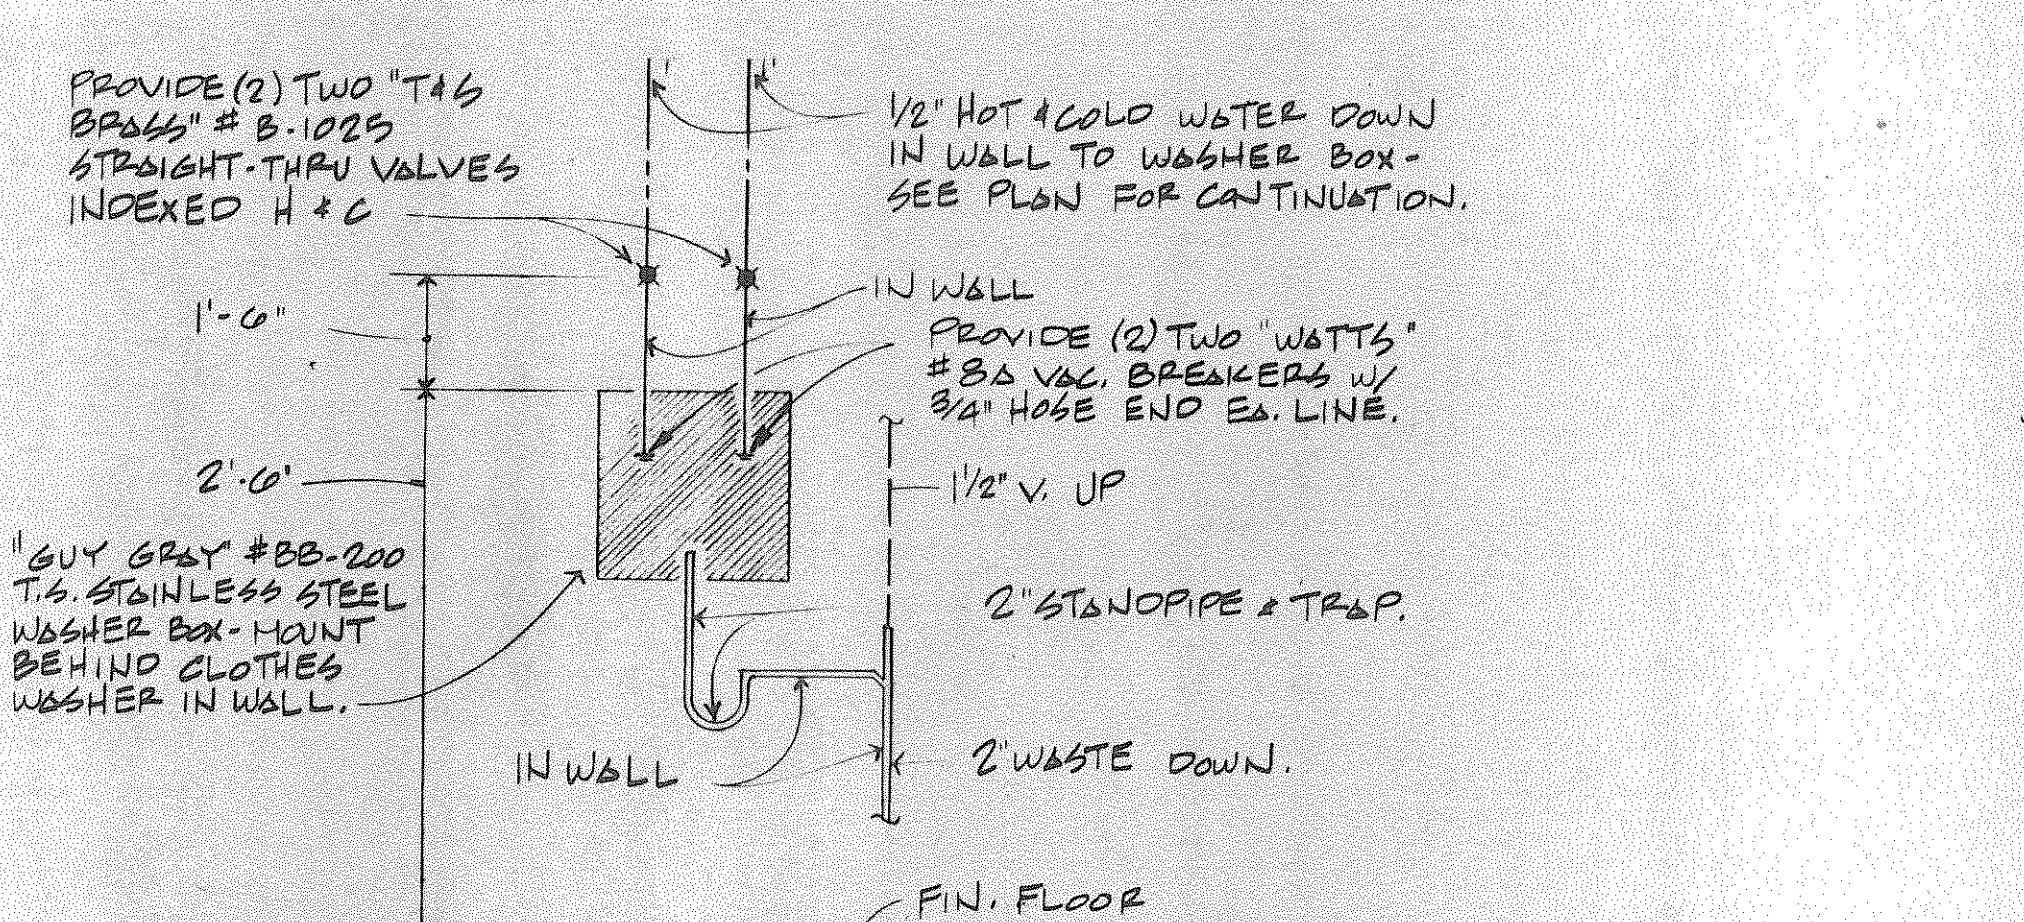 PROVIDE (2) TWO "T&S
BRASS" # B-1025
STRAIGHT-THRU VALVES
INDEXED H & C
1/2" HOT & COLD WATER DOWN
IN WALL TO WASHER BOX-
SEE PLAN FOR CONTINUATION.
IN WALL
1'-6"
PROVIDE (2) TWO "WATTS"
#8A VAC. BREAKERS W/
3/4" HOSE END EA. LINE.
2'-6'
1 1/2" V. UP
"GUY GRAY" #BB-200
T.S. STAINLESS STEEL
WASHER BOX-MOUNT
BEHIND CLOTHES
WASHER IN WALL.
2" STANDPIPE & TRAP.
IN WALL
2" WASTE DOWN.
FIN. FLOOR